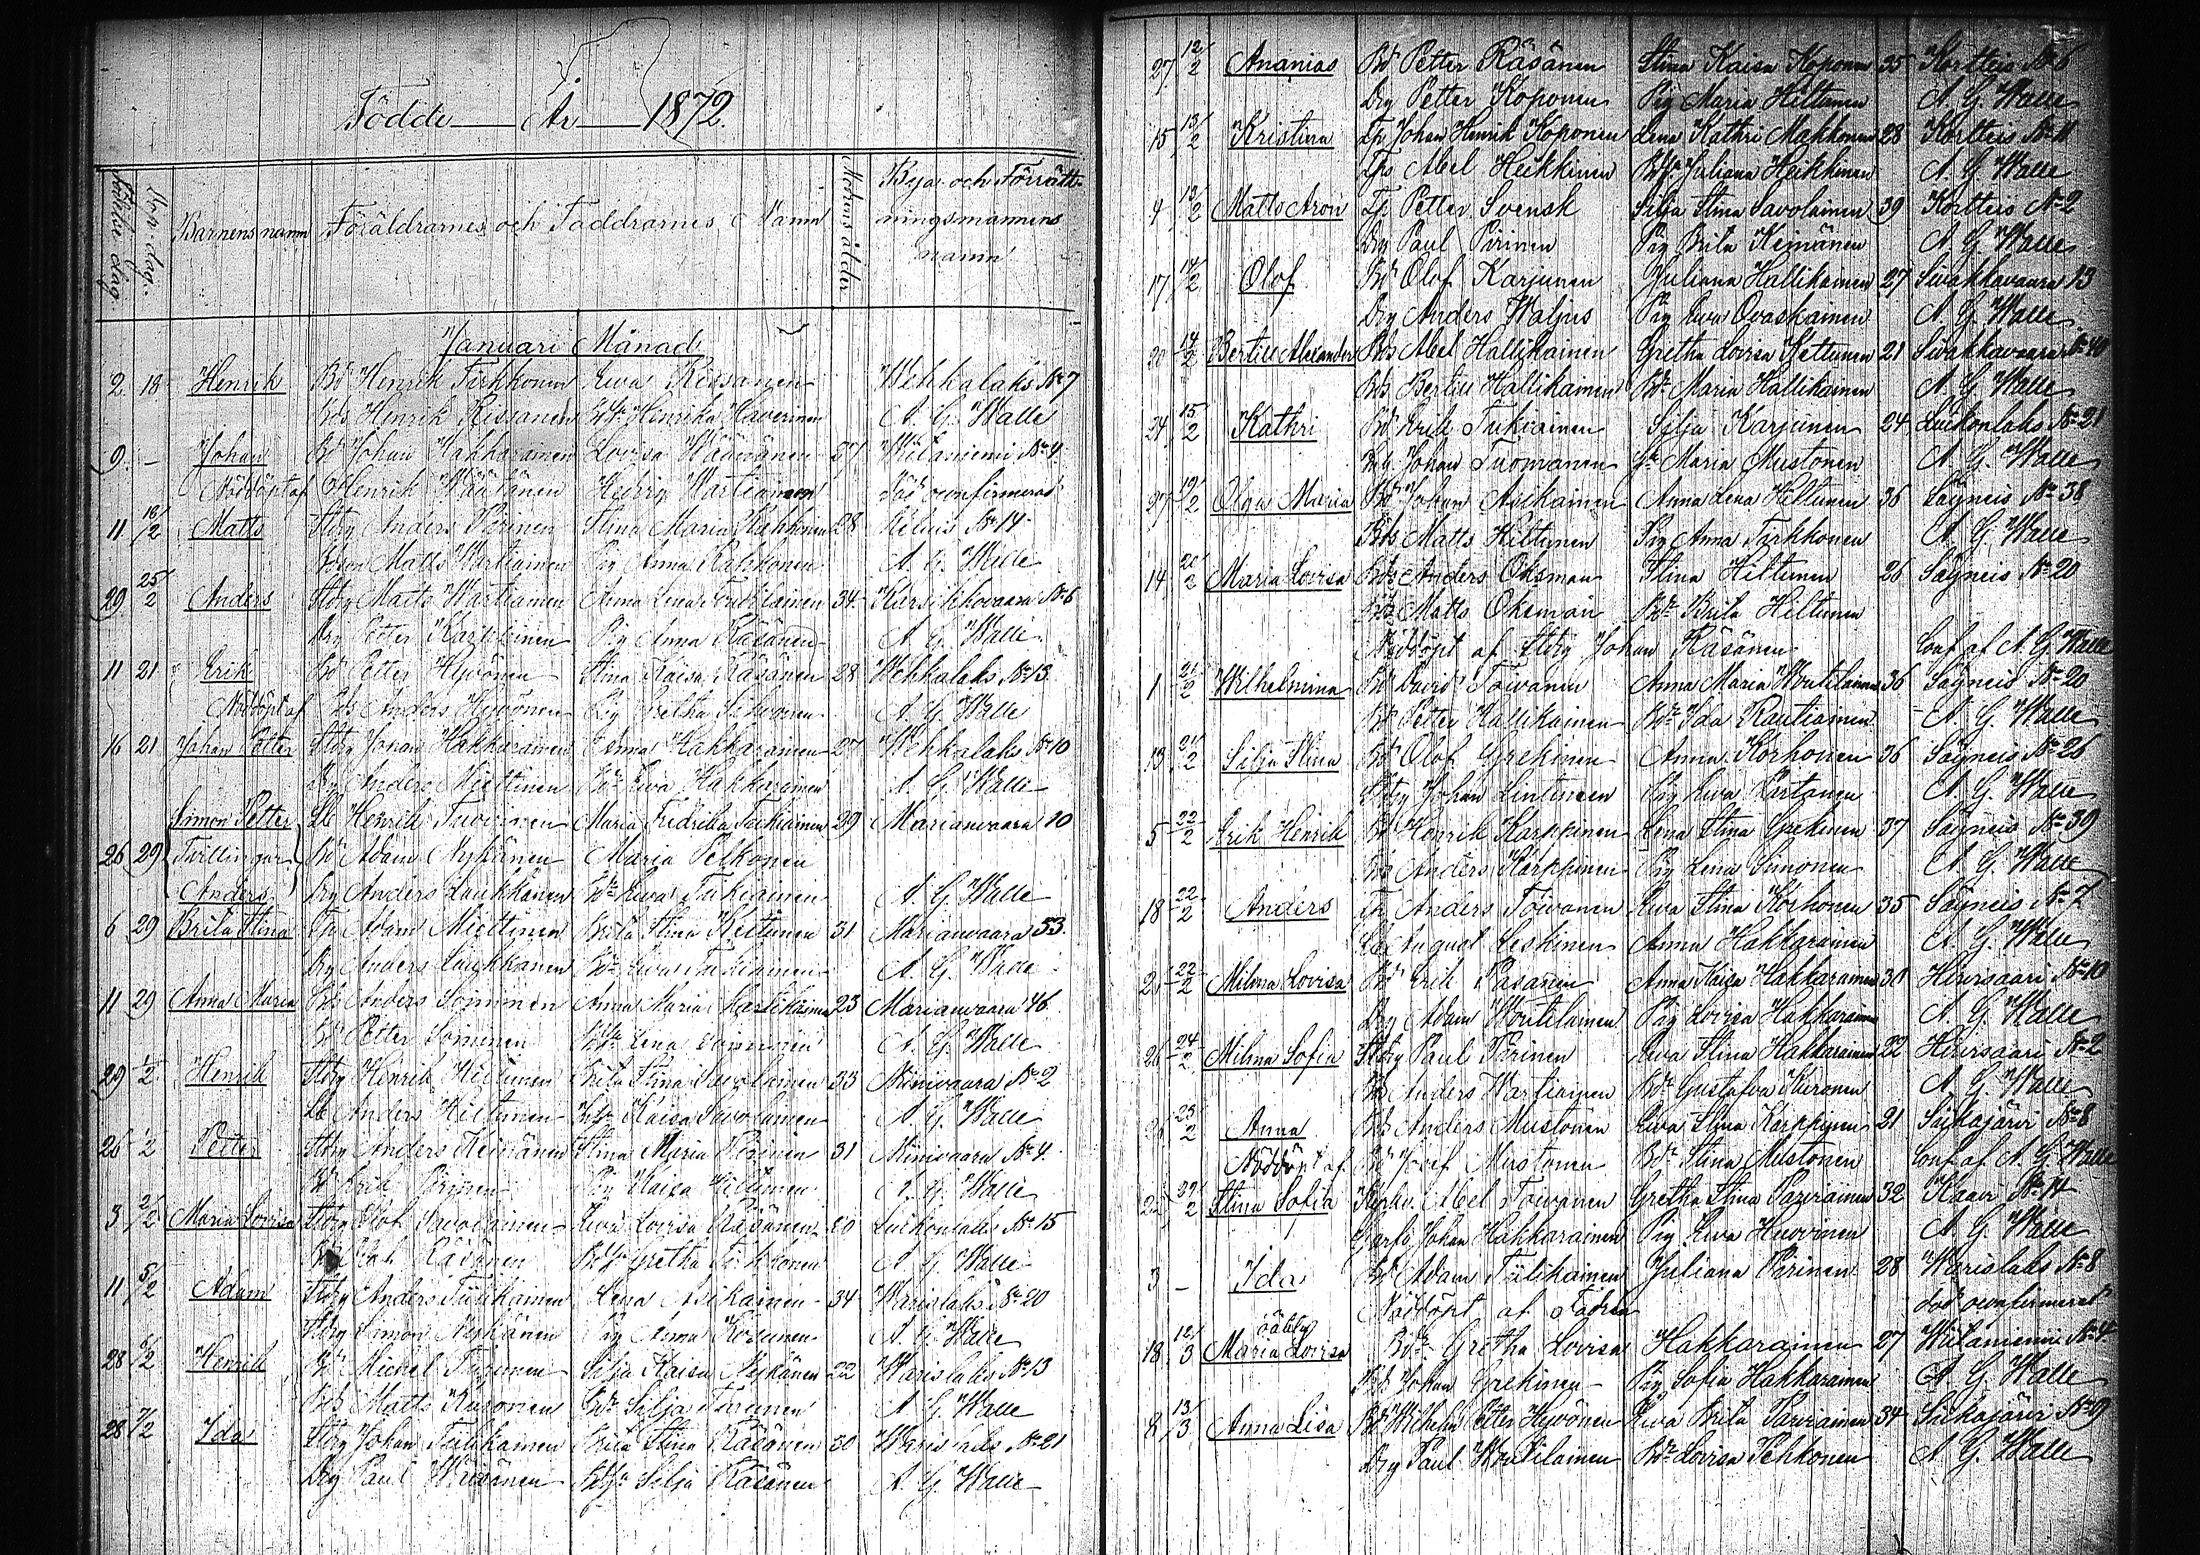 Födde År 1872.
Födelse dag. Dop dag. Barnens namn Föräldrarnes och Faddrarnes Namn Modrens ålder Byar och Förrättningsmannens namn
Januari Månad
2 18 Henrik Bd Henrik Tirkkonen Ewa Rissanen Wehkalaks No 7
Bds Henrik Rissanen Henrika Haverinen A. G. Walle
9 – Johan Bd Johan Hakkarainen Lovisa Väänänen 37 Wiitaniemi No 4
Nöddöpt af Henrik Väätänen Hedvig Wartiainen Död oconfirmerad
11 18/2 Matts Stdrg Anders Pirinen Stina Maria Rahkonen 28 No 14
Matts Wartiainen Pig Anna Rahkonen A. G. Walle
29 25/2 Anders Stdrg Matts Wartiainen Anna Lena 34 Kärsikkovaara No 6
Drg Petter Karppinen Pig Anna Räsänen A. G. Walle
11 21 Erik Bd Petter Hyvönen Stina Kaisa Räsänen 28 Wehkalaks No 13
Nöddöpt af Bds Anders Hyvönen Pig Gretha A. G. Walle
16 21 Johan Petter Stdrg Johan Hakkarainen Anna Hakkarainen 27 Wehkalaks No 10
Drg Anders Miettinen Bdr Ewa Hakkarainen A. G. Walle
Simon Petter Lb Henrik Maria Fredrika Tukiainen 29 Marianvaara 10
26 29 Tvillingar Bd Adam Nykänen Maria Pelkonen
Anders Drg Anders Laukkanen Bdr Ewa Tukiainen A. G. Walle
6 29 Brita Stina Tp Adam Miettinen Brita Stina Kettunen 31 Marianvaara 53.
Drg Anders Laukkanen Bdr Ewa Tukiainen A. G. Walle
11 29 Anna Maria Bds Anders Soininen Anna Maria Martikainen 23 Marianvaara 46
Bd Petter Soininen Lena Soininen A. G. Walle
29 1/2 Henrik Stdrg Henrik Hiltunen Brita Stina Savolainen 33 Niinivaara No 2
Lb Anders Hiltunen Kaisa Savolainen A. G. Walle
26 1/2 Petter Stdrg Anders Keinänen Stina Maria Pirinen 31 Niinivaara No 4
Bd Erik Pirinen Pig Kaisa Hiltunen A. G. Walle
3 2/2 Maria Lovisa Stdrg Olof Savolainen Ewa Lovisa Räsänen 20 Luikonlaks No 15
Räsänen Gretha Tirkkonen A. G. Walle
11 5/2 Adam Stdrg Anders Tiilikainen Lena Asikainen 34 Warislaks No 20
Stdrg Simon Nykänen Pig Anna Kosunen A. G. Walle
28 6/2 Henrik Bd Michel Turunen Silja Kaisa Nykänen 22 Warislaks No 13
Bds Matts Karonen Bdr Silja Turunen A. G. Walle
28 7/2 Ida Stdrg Johan Tiilikainen Brita Stina Räsänen 30 Warislaks No 21
Drg Paul Väisänen Silja Räsänen A. G. Walle
27 12/2 Ananias Bd Petter Räsänen Stina Kaisa Koponen 35 Kortteis No 6
Drg Petter Koponen Pig Maria Hiltunen A. G. Walle
15 13/2 Kristina Tp Johan Henrik Koponen Lena Kathri Makkonen 28 Kortteis No 11
Tps Abel Heikkinen Juliana Heikkinen A. G. Walle
4 13/2 Matts Aron Tp Petter Svensk Silja Stina Savolainen 39 Kortteis No 2
Drg Paul Pirinen Pig Brita Keinänen A. G. Walle
17 14/2 Olof Bd Olof Karjunen Juliana Hallikainen 27 Sivakkavaara 13
Drg Anders Waljus Pig Ewa Ovaskainen A. G. Walle
20 14/2 Bertill Alexander Bds Abel Hallikainen Gretha Lovisa Kettunen 21 Sivakkavaara No 40
Bds Bertill Hallikainen Bdr Maria Hallikainen A. G. Walle
24 15/2 Kathri Bd Erik Tukiainen Silja Karjunen 24 Luikonlaks No 21
Johan Tuomanen Maria Mustonen A. G. Walle
27 19/2 Olga Maria Bd Johan Asikainen Anna Lena Hiltunen 36 Säyneis No 38
Bds Matts Hiltunen Pig Anna Tirkkonen A. G. Walle
14 20/2 Maria Lovisa Bds Anders Oksman Stina Hiltunen 26 Säyneis No 20
Bds Matts Oksman Bdr Brita Hiltunen
Nöddöpt af Stdrg Johan Räsänen Conf af A. G. Walle
1 21/2 Wilhelmina Bd David Toivanen Anna Maria Woutilainen 36 Säyneis No 20
Bd Petter Hallikainen Bdr Ida Rautiainen A. G. Walle
13 21/2 Silja Stina Bd Olof Grekinen Anna Korhonen 36 Säyneis No 26
Stdrg Johan Lintunen Pig Ewa Partanen A. G. Walle
5 22/2 Erik Henrik Bd Henrik Karppinen Lena Stina Grekinen 37 Säyneis No 39
Bds Anders Karppinen Pig Lena Simonen A. G. Walle
18 22/2 Anders Tp Anders Toivanen Ewa Stina Korhonen 35 Säyneis No 7
Lb August Leskinen Anna Hakkarainen A. G. Walle
22/2 Milma Lovisa Bd Erik Pasanen Anna Kaisa Hakkarainen 30 Hirvisaari No 10
Drg Adam Woutilainen Pig Lovisa Hakkarainen A. G. Walle
26 24/2 Milma Sofia Stdrg Paul Pirinen Ewa Stina Hakkarainen 22 Hirvisaari No 2
Bds Anders Wartiainen Bdr Gustafva Kuronen A. G. Walle
28/2 Anna Bds Anders Mustonen Ewa Stina Karppinen 21 Siikajärvi No 8
Nöddöpt af Bd Josef Mustonen Bdr Stina Mustonen Conf af A. G. Walle
29/2 Stina Sofia Abel Toivanen Gretha Stina Parviainen 32 Kaavi No 14
Johan Hakkarainen Pig Ewa Huovinen A. G. Walle
3 – Ida Bd Adam Tiilikainen Juliana Pirinen 28 Warislaks No 8
Nöddöpt af Fadren död oconfirmerad
18 12/3 oäkta Maria Lovisa Bdr Gretha Lovisa Hakkarainen 27 Wiitaniemi No 4
Bds Johan Grekinen Pig Sofia Hakkarainen A. G. Walle
8 13/3 Anna Lisa Bd Wilhelm Petter Hyvönen Ewa Brita Parviainen 34 Siikajärvi No 9
Drg Paul Woutilainen Bdr Lovisa Pehkonen A. G. Walle